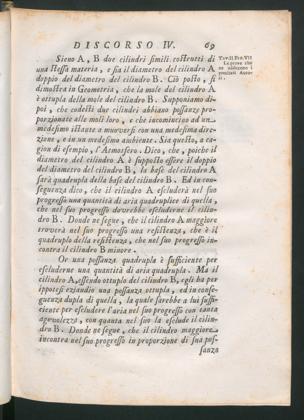 DISCORSO IV. 69
Sieno A, B due cilindri simili costrutti di
una stessa materia, e sia il diametro del cilindro A
doppio del diametro del cilindro B. Ciò posto, si
dimostra in Geometria, che la mole del cilindro A
è ottupla della mole del cilindro B. Supponiamo di-
poi, che codesti due cilindri abbiano possanze pro-
porzionate alle moli loro, e che incomincino ad un
medesimo istante a muoversi con una medesima dire-
zione, e in un medesimo ambiente. Sia questo, a ca-
gion di esempio, l'Atmosfera. Dico, che, poichè il
diametro del cilindro A è supposto essere il doppio
del diametro del cilindro B, la base del cilindro A
sarà quadrupla della base del cilindro B. Ed in con-
seguenza dico, che il cilindro A escluderà nel suo
progresso una quantità di aria quadruplice di quella,
che nel suo progresso dovrebbe escluderne il cilin-
dro B. Donde ne segue, che il cilindro A maggiore
troverà nel suo progresso una resistenza, che è il
quadruplo della resistenza, che nel suo progresso in-
contra il cilindro B minore.
Or una possanza quadrupla è sufficiente per
escluderne una quantità di aria quadrupla. Ma il
cilindro A, essendo ottuplo del cilindro B, egli ha per
ipotesi eziandio una possanza ottupla, ed in conse-
guenza dupla di quella, la quale sarebbe a lui suffi-
ciente per escludere l'aria nel suo progresso con tanta
agevolezza, con quanta nel suo la esclude il cilin-
dro B. Donde ne segue, che il cilindro maggiore
incontra nel suo progresso in proporzione di sua pos-
sanza
Tav. II. Fig. VII
Le prove che
ne adducono i
prenotati Auto-
ri.